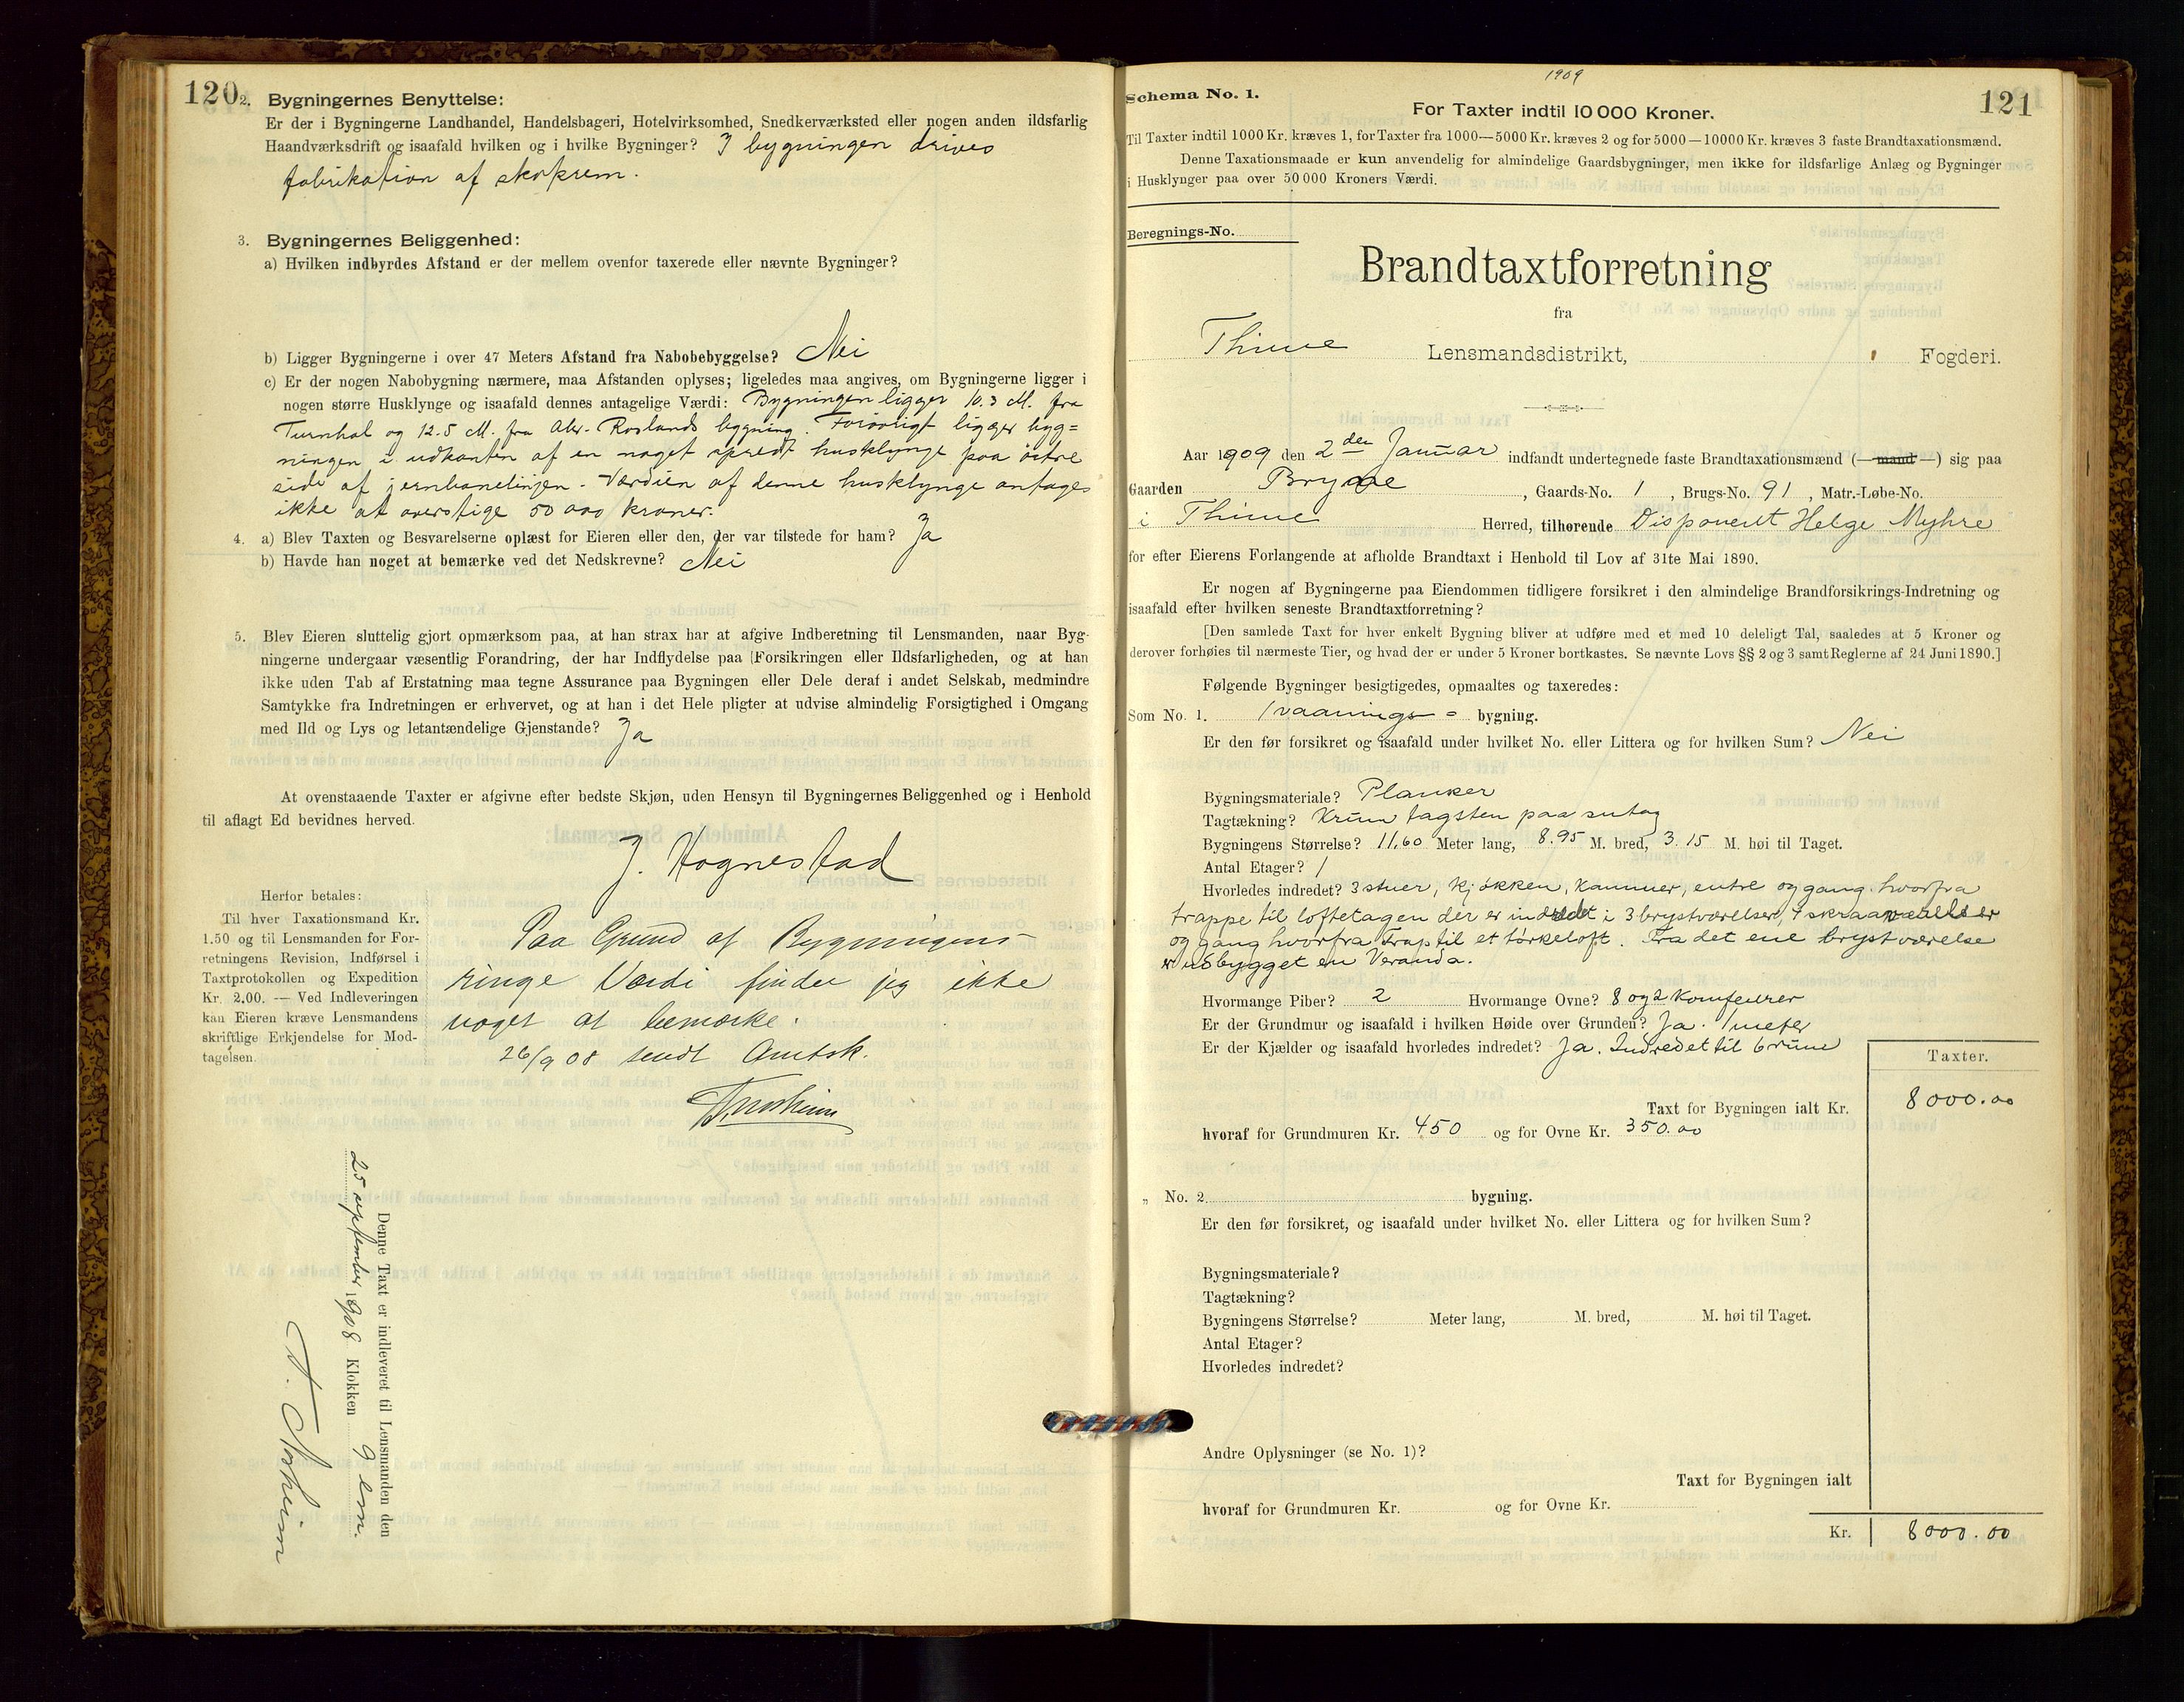 120
2. Bygningernes Benyttelse:
Er der i Bygningerne Landhandel, Handelsbageri, Hotelvirksomhed, Snedkerværksted eller nogen anden ildsfarlig
Haandværksdrift og isaafald hvilken og i hvilke Bygninger? I bygningen drives
fabrikation af skokrem.
3. Bygningernes Beliggenhed:
a) Hvilken indbyrdes Afstand er der mellem ovenfor taxerede eller nævnte Bygninger?
b) Ligger Bygningerne i over 47 Meters Afstand fra Nabobebyggelse? Nei
c) Er der nogen Nabobygning nærmere, maa Afstanden oplyses; ligeledes maa angives, om Bygningerne ligger i
nogen større Husklynge og isaafald dennes antagelige Værdi: Bygningen ligger 10.3 M. fra
Turnhal og 12.5 M. fra Abr. Roslands bygning. Forøvrigt ligger byg=
ningen i udkanten af en noget spredt husklynge paa østre
side af jernbanelinjen. Værdien af denne husklynge antages
ikke at overstige 50 000 kroner.
4. a) Blev Taxten og Besvarelserne oplæst for Eieren eller den, der var tilstede for ham? Ja
b) Havde han noget at bemærke ved det Nedskrevne? Nei
5. Blev Eieren sluttelig gjort opmærksom paa, at han strax har at afgive Indberetning til Lensmanden, naar Byg-
ningerne undergaar væsentlig Forandring, der har Indflydelse paa Forsikringen eller Ildsfarligheden, og at han
ikke uden Tab af Erstatning maa tegne Assurance paa Bygningen eller Dele deraf i andet Selskab, medmindre
Samtykke fra Indretningen er erhvervet, og at han i det Hele pligter at udvise almindelig Forsigtighed i Omgang
med Ild og Lys og letantændelige Gjenstande? Ja
At ovenstaaende Taxter er afgivne efter bedste Skjøn, uden Hensyn til Bygningernes Beliggenhed og i Henhold
til aflagt Ed bevidnes herved.
J. Hognestad
Herfor betales:
Til hver Taxationsmand Kr.
1.50 og til Lensmanden for For-
retningens Revision, Indførsel i
Taxtprotokollen og Expedition
Kr. 2.00. — Ved Indleveringen
kan Eieren kræve Lensmandens
skriftlige Erkjendelse for Mod-
tagelsen.
Paa Grund af Bygningens
ringe Værdi finder jeg ikke
noget at bemærke.
26/9 08 sendt Amtsk.
Denne Taxt er indleveret til Lensmanden den
25 september 1908 Klokken 9 em.
1909
121
Schema No. 1.
For Taxter indtil 10 000 Kroner.
Til Taxter indtil 1000 Kr. kræves 1, for Taxter fra 1000—5000 Kr. kræves 2 og for 5000—10000 Kr. kræves 3 faste Brandtaxationsmænd.
Denne Taxationsmaade er kun anvendelig for almindelige Gaardsbygninger, men ikke for ildsfarlige Anlæg og Bygninger
i Husklynger paa over 50 000 Kroners Værdi.
Beregnings-No.
Brandtaxtforretning
fra
Thime Lensmandsdistrikt, Fogderi.
Aar 1909 den 2den Januar indfandt undertegnede faste Brandtaxationsmænd (—mand—) sig paa
Gaarden Bryne, Gaards-No. 1, Brugs-No. 91, Matr.-Løbe-No.
i Thime Herred, tilhørende Disponent Helge Myhre
for efter Eierens Forlangende at afholde Brandtaxt i Henhold til Lov af 31te Mai 1890.
Er nogen af Bygningerne paa Eiendommen tidligere forsikret i den almindelige Brandforsikrings-Indretning og
isaafald efter hvilken seneste Brandtaxtforretning?
[Den samlede Taxt for hver enkelt Bygning bliver at udføre med et med 10 deleligt Tal, saaledes at 5 Kroner og
derover forhøies til nærmeste Tier, og hvad der er under 5 Kroner bortkastes. Se nævnte Lovs §§ 2 og 3 samt Reglerne af 24 Juni 1890.]
Følgende Bygninger besigtigedes, opmaaltes og taxeredes:
Som No. 1. Ivaanings= bygning.
Er den før forsikret og isaafald under hvilket No. eller Littera og for hvilken Sum? Nei
Bygningsmateriale? Planker
Tagtækning? Krum tagsten paa sutag
Bygningens Størrelse? 11.60 Meter lang, 8.95 M. bred, 3.15 M. høi til Taget.
Antal Etager? 1
Hvorledes indredet? 3 stuer, kjøkken, kammer, entre og gang. hvorfra
trappe til loftetagen der er indredet i 3 brystværelser, 4 skraaværelser
og gang hvorfra Trap til et tørkeloft. Fra det ene brystværelse
er udbygget en Veranda.
Hvormange Piber? 2 Hvormange Ovne? 8 og 2 komfeurer
Er der Grundmur og isaafald i hvilken Høide over Grunden? Ja. 1 meter
Er der Kjælder og isaafald hvorledes indredet? Ja. Indredet til 6 rum
Taxter.
Taxt for Bygningen ialt Kr. 8000.00
hvoraf for Grundmuren Kr. 450 og for Ovne Kr. 350.00
„ No. 2. bygning.
Er den før forsikret, og isaafald under hvilket No. eller Littera og for hvilken Sum?
Bygningsmateriale?
Tagtækning?
Bygningens Størrelse? Meter lang, M. bred, M. høi til Taget.
Antal Etager?
Hvorledes indredet?
Andre Oplysninger (se No. 1)?
Taxt for Bygningen ialt
hvoraf for Grundmuren Kr. og for Ovne Kr.
Kr. 8000.00